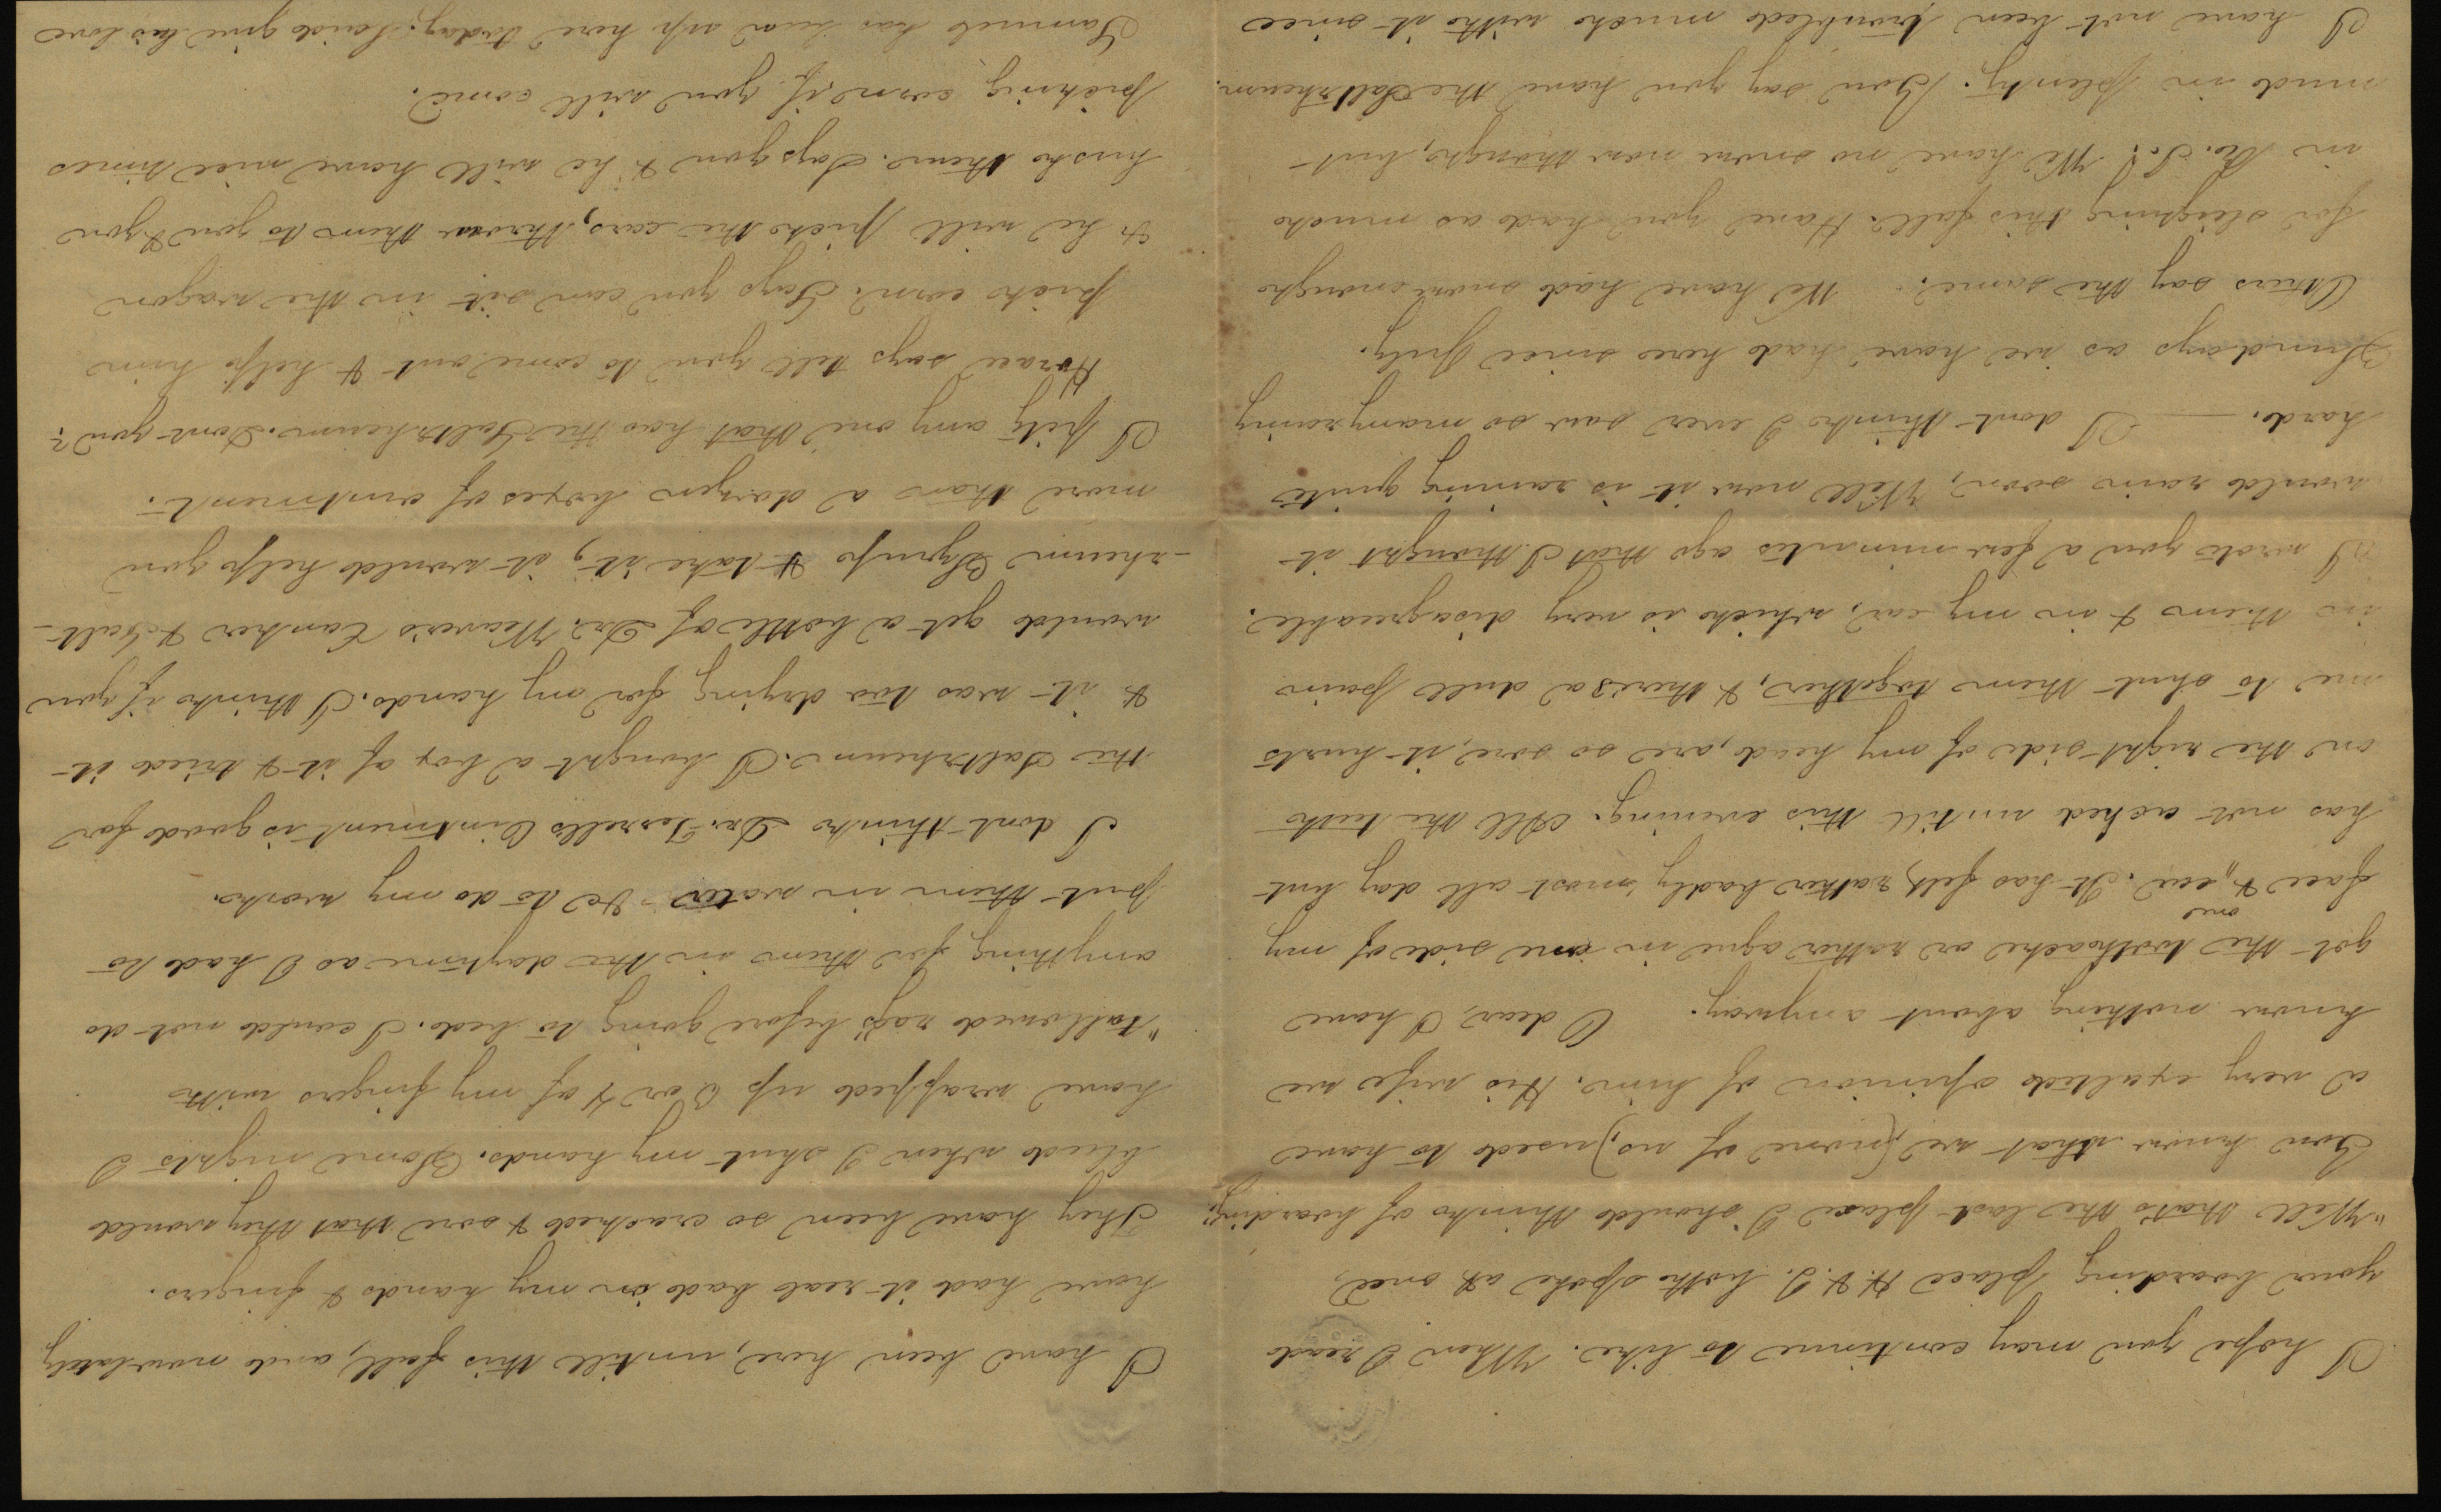 I hope you may continue to like. When I read
your boarding place H. & I. both spoke at once,
"Well that's the last place I should think of boarding."
You know that we (none of us) used to have
a very exalted opinion of him. His wife we
know nothing about anyway. O dear, I have
got the toothache or rather ague in one side of my
one
face & ear. It has felt rather badly most all day but
has not ached untill this evening. All the teeth
on the right side of my head, are so sore, it hurts
me to shut them together, & there's a dull pain
in them & in my ear, which is very disagreeable.
I wrote you a few minutes ago that I thought it
would rain soon, Well now it is raining quite
hard. — I dont think I ever saw so many rainy
Sundays as we have had here since July.
Others say the same. We have had snow enough
for sleighing this fall. Have you had as much
in R. I.? We have no snow now though, but
mud in plenty. You say you have the Saltrheum.
I have not been troubled much with it since
I have been here, untill this fall, and now lately
have had it real bad in my hands & fingers.
They have been so cracked & sore that they would
bleed when I shut my hands. Some nights I
have wrapped up 3 or 4 of my fingers with
"tallowed rags" before going to bed. I could not do
anything for them in the daytime as I had to
put them in water &c to do my work.
I dont think Dr. Terrell's Ointment is good for
the Saltrheum. I bought a box of it & tried it
& it was too drying for my hands. I think if you
would get a bottle of Dr. Weaver's Canker & Salt-
-rheum Syrup & take it, it would help you
more than a dozen boxes of ointment.
I pity any one that has the Saltrheum. Dont you?
Horace says tell you to come out & help him
pick corn. Says you can sit in the wagon
& he will pick the ears, throw them to you & you
husk them. Says you & he will have nice times
picking corn, if you will come.
Samuel has been up here today; said give his love